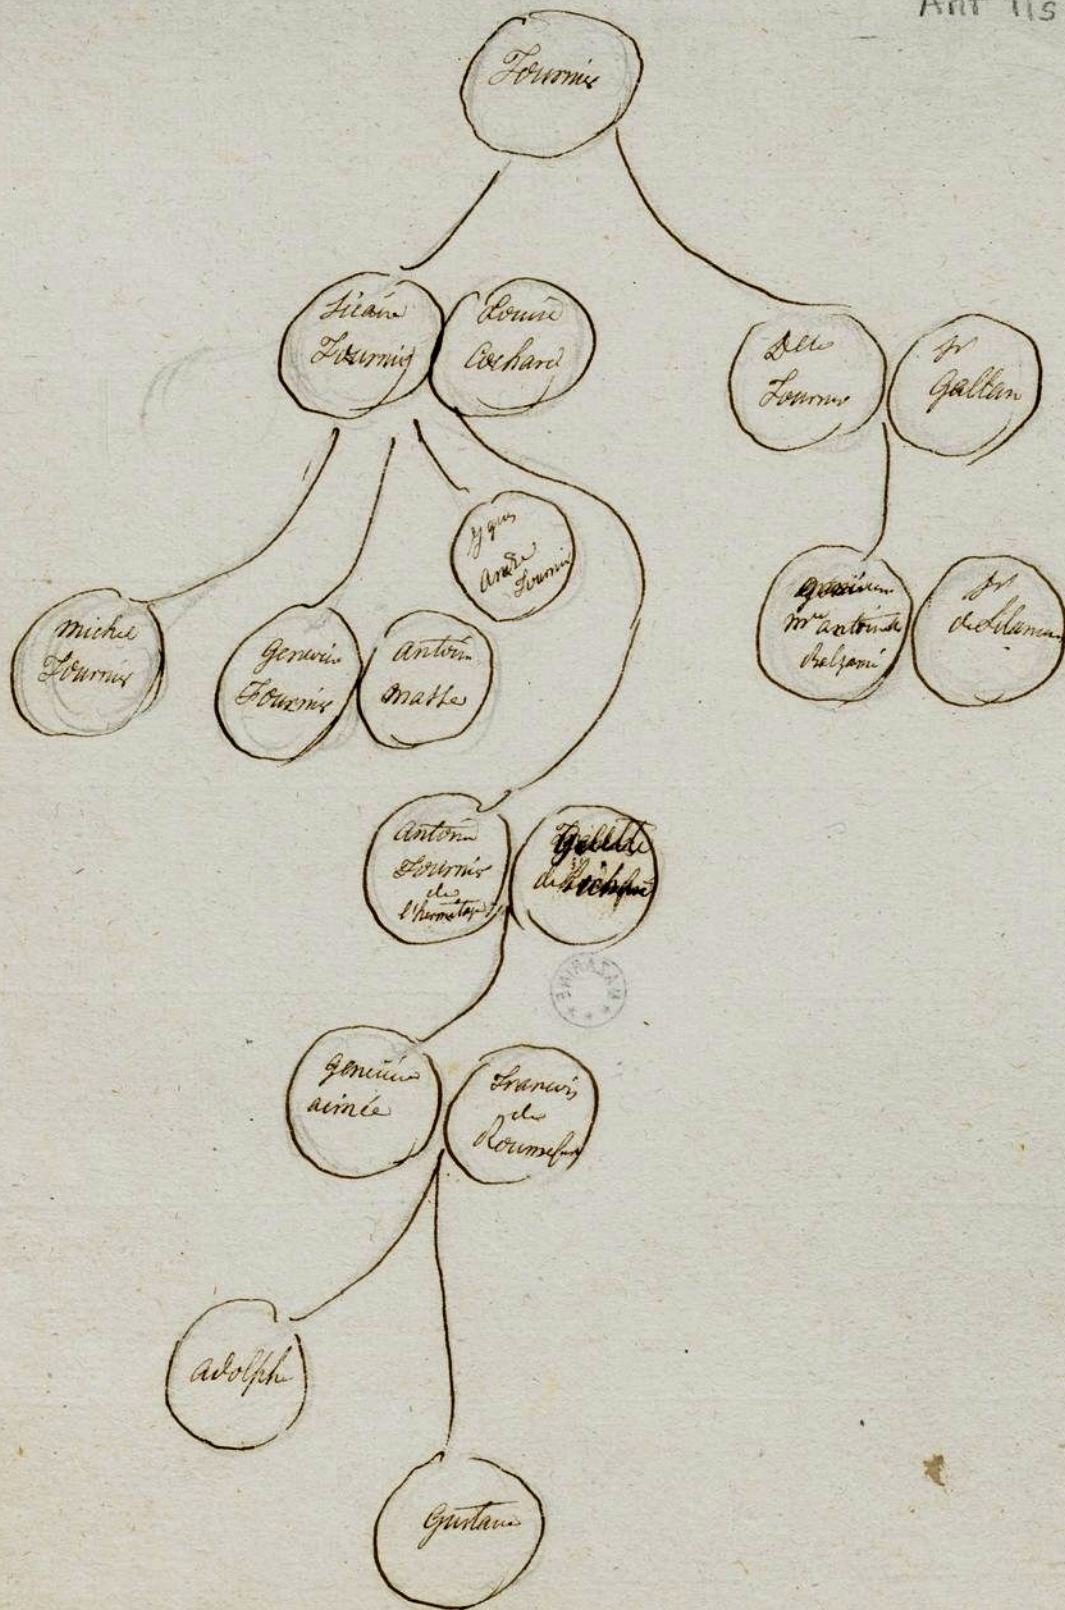 Ant 115
Fournier
Sicaire
Fournier
Louise
Cochard
Dlle
Fournier
Sr
Galtan
Jques
André
Fournier
Michel
Fournier
Genevieve
Fournier
Antoine
Matte
mie antoinette
Sr
Antoine
Fournier
de
l'hermitage
de
genevieve
aimée
Francois
de
adolphe
Gustave